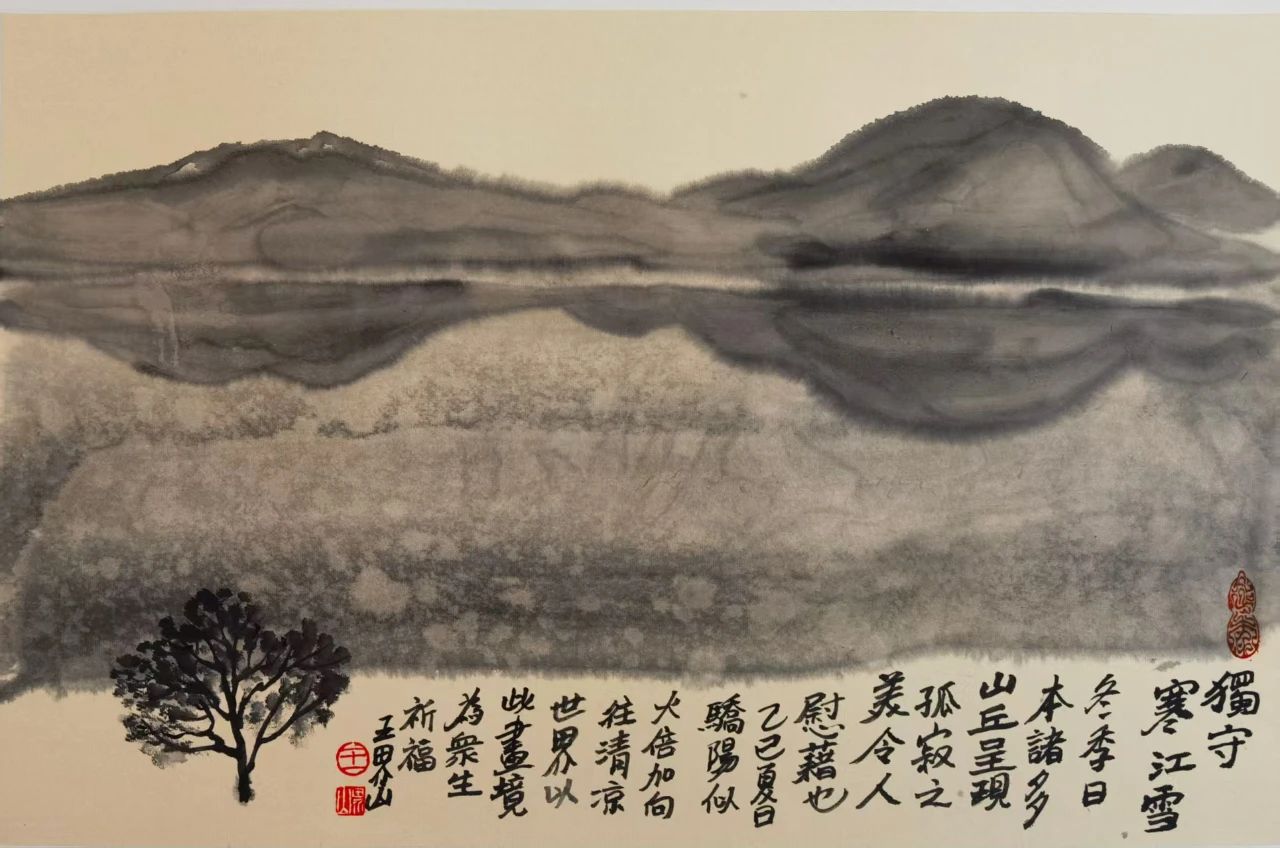 獨守
寒江雪
冬季日
本諸多
山丘呈現
孤寂之
美令人
慰藉也
乙巳夏日
驕陽似
火倍加向
往清凉
世界以
此畫境
為衆生
祈福